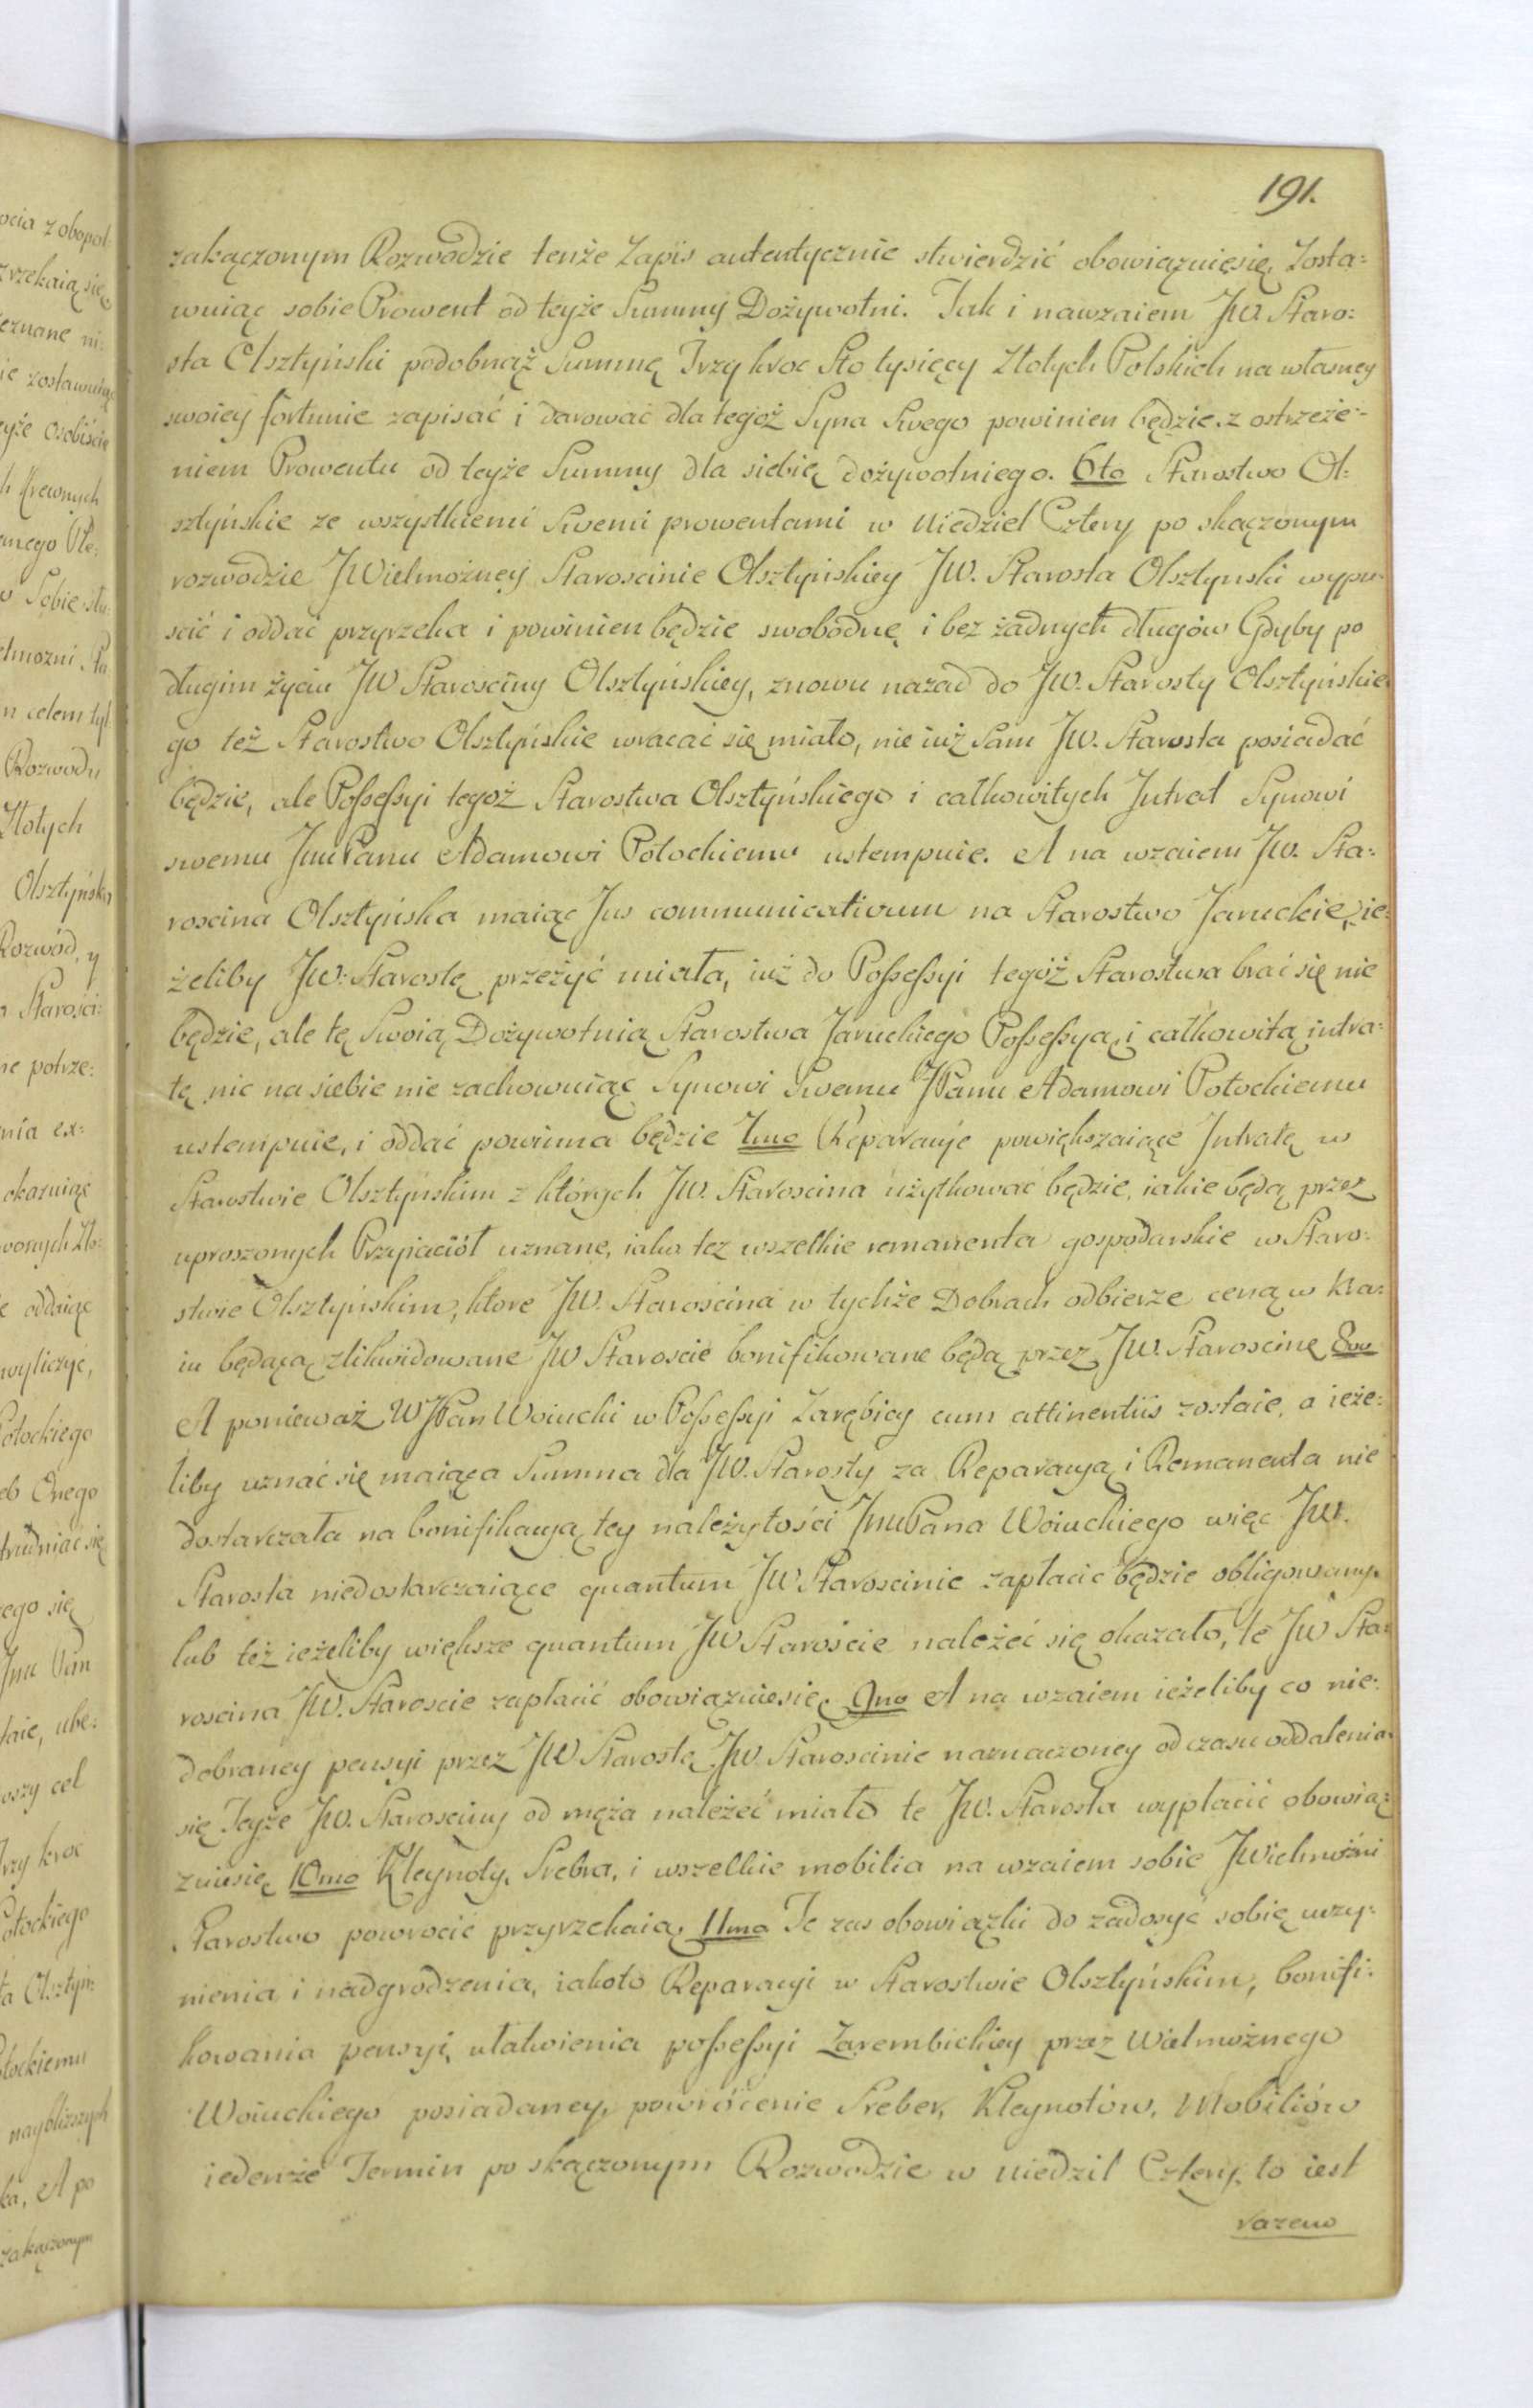 191.
zakączonym Rozwodzie tenże Zapis autentycznie stwierdzić obowiązuięsię, Zosta=
wuiąc sobie Prowent od teyże Summy Dożywotni. Tak i nawzaiem JW. Staro:
sta Olsztyński podobnąż Summę Trzy kroc Sto tysięcy Złotych Polskich na własney
swoiey fortunie zapisać i darować dla tegoż Syna Swego powinien będzie. z ostrzeże=
niem Prowentu od teyże Summy dla siebię dożywotniego. 6to Starostwo Ol:
sztyńskie ze wszystkiemi Swemi prowentami w Niedziel Cztery po skączonym
rozwodzie JWielmożney Staroscinie Olsztyńskiey JW. Starosta Olsztynski wypu=
scić i oddać przyrzeka i powinien będzie swobodnę i bez żadnych długów Gdyby po
długim życiu JW Starosciny Olsztyńskiey, znowu nazad do JW. Starosty Olsztyńskie
go też Starostwo Olsztyńskie wracać się miało, nie iuż Sam JW. Starosta posiadać
będzie, ale Possessyi tegoż Starostwa Olsztyńskiego i całkowitych Intrat Synowi
swemu JmuPanu Adamowi Potockiemu ustempuie. A na wzaiem JW. Sta:
roscina Olsztyńska maiąc Jus communicativum na Starostwo Jaruckie, ie:
żeliby JW: Starostę przeżyć miała, iuż do Possessyi tegoż Starostwa brać się nie
będzie, ale tę Swoią Dożywotnią Starostwa Jaruckiego Possessyą i całkowitą intra=
tę nic na siebie nie zachowuiąc Synowi Swemu JPanu Adamowi Potockiemu
ustempuie, i oddać powinna będzie 7mo Reparacyje powiększaiące Intratę w
Starostwie Olsztyńskim z których JW. Staroscina użytkować będzie, iakie będą przez
uproszonych Przyiaciół uznane, iako tez wszelkie remanenta gospodarskie w Staro:
stwie Olsztyńskim, ktore JW. Starościna w tychże Dobrach odbierze ceną w Kra:
iu będącą zlikwidowane JW Staroscie bonifikowane będą przez JW. Staroscinę 8vo
A ponieważ WJPan Woiucki w Possessyi Zarębicy cum attinentiis zostaie, a ieże:
liby uznać się maiąca Summa dla JW. Starosty za Reparacyą i Remanenta nie
dostarczała na bonifikacyą tey należytości JmuPana Woiuckiego więc JW.
Starosta niedostarczaiące quantum JW Staroscinie zapłacic będzie obligowany.
lub też ieżeliby większe quantum JW Staroście należeć się okazało, te JW Sta=
roscina JW. Staroscie zapłacić obowiązuiesię, 9no A na wzaiem ieżeliby co nie:
dobraney pensyi przez JW Starostę JW. Staroscinie naznaczoney od czasu oddalenia
się Teyże JW. Starosciny od męża należeć miało te JW. Starosta wypłacić obowią=
zuiesię, 10mo Kleynoty, Srebra, i wszelkie mobilia na wzaiem sobie JWielmożni
Starostwo powrocić przyrzekaią, 11mo Te zas obowiązki do zadosyć sobię uczy=
nienia i nadgrodzenia, iakoto Reparacyi w Starostwie Olsztyńskim, bonifi:
kowania pensyi, ułatwienia possessyi Zarembickiey przez Wielmożnego
Woiuckiego posiadaney, powrócenie Sreber, Kleynotów, Mobiliów
iedenże Termin po skączonym Rozwodzie w Niedzil Cztery, to iest
razem